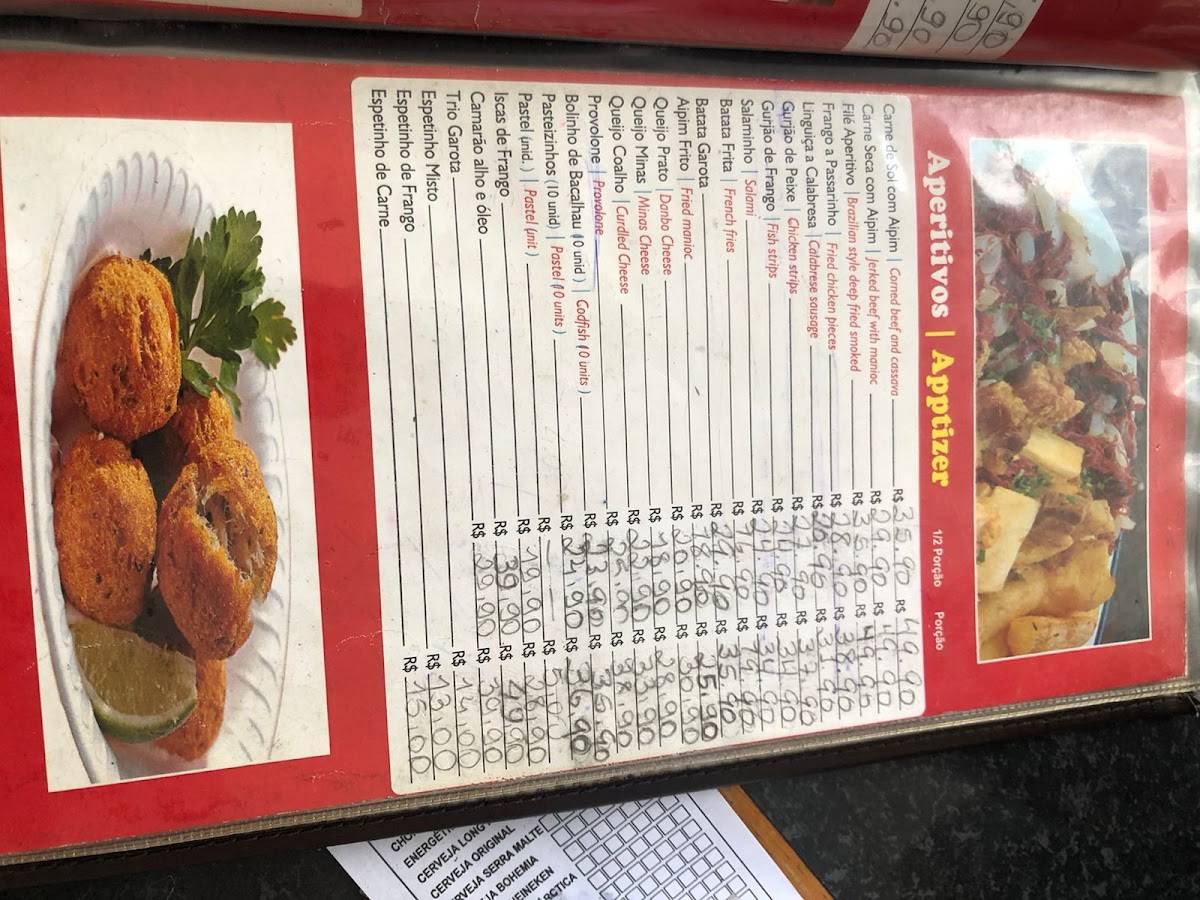 .90
.90
90
.90
Aperitivos | Apptizer 1/2 Porção Porção
Carne de Sol com Aipim | Corned beef and cassava R$ 35.90 R$ 49.90
Carne Seca com Aipim | Jerked beef with manioc R$ 29.90 R$ 49.90
Filé Aperitivo | Brazilian style deep fried smoked R$ 35.90 R$ 49.90
Frango a Passarinho | Fried chicken pieces R$ 28.90 R$ 38.90
Linguiça a Calabresa | Calabrese sausage R$ 20.90 R$ 31.90
Gurjão de Peixe | Chicken strips R$ 27.90 R$ 37.90
Gurjão de Frango | Fish strips R$ 24.90 R$ 34.90
Salaminho | Salami R$ 24.90 R$ 34.90
Batata Frita | French fries R$ 14.90 R$ 19.90
Batata Garota R$ 24.90 R$ 35.90
Aipim Frito | Fried manioc R$ 18.90 R$ 25.90
Queijo Prato | Danbo Cheese R$ 20.90 R$ 30.90
Queijo Minas | Minas Cheese R$ 18.90 R$ 28.90
Queijo Coalho | Curdled Cheese R$ 22.90 R$ 33.90
Provolone | Provolone R$ 25.90 R$ 38.90
Bolinho de Bacalhau (10 unid) | Codfish (10 units) R$ 23.90 R$ 36.90
Pasteizinhos (10 unid) | Pastel (10 units) R$ 24,90 R$ 36,90
Pastel (unid.) | Pastel (unit) R$ — R$ 5,00
Iscas de Frango R$ 19,90 R$ 28,90
Camarão alho e óleo R$ 39,90 R$ 49,90
Trio Garota R$ 29,90 R$ 38,90
Espetinho Misto R$ 14,00
Espetinho de Frango R$ 13,00
Espetinho de Carne R$ 15,00
CHO
ENERGÉT
CERVEJA LONG
CERVEJA ORIGINAL
RVEJA SERRA MALTE
JA BOHEMIA
HEINEKEN
ARCTICA